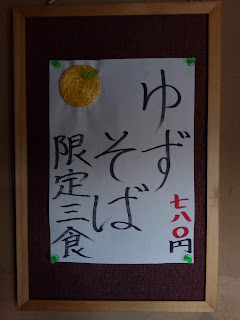 ゆず
そば
七八〇円
限定三食